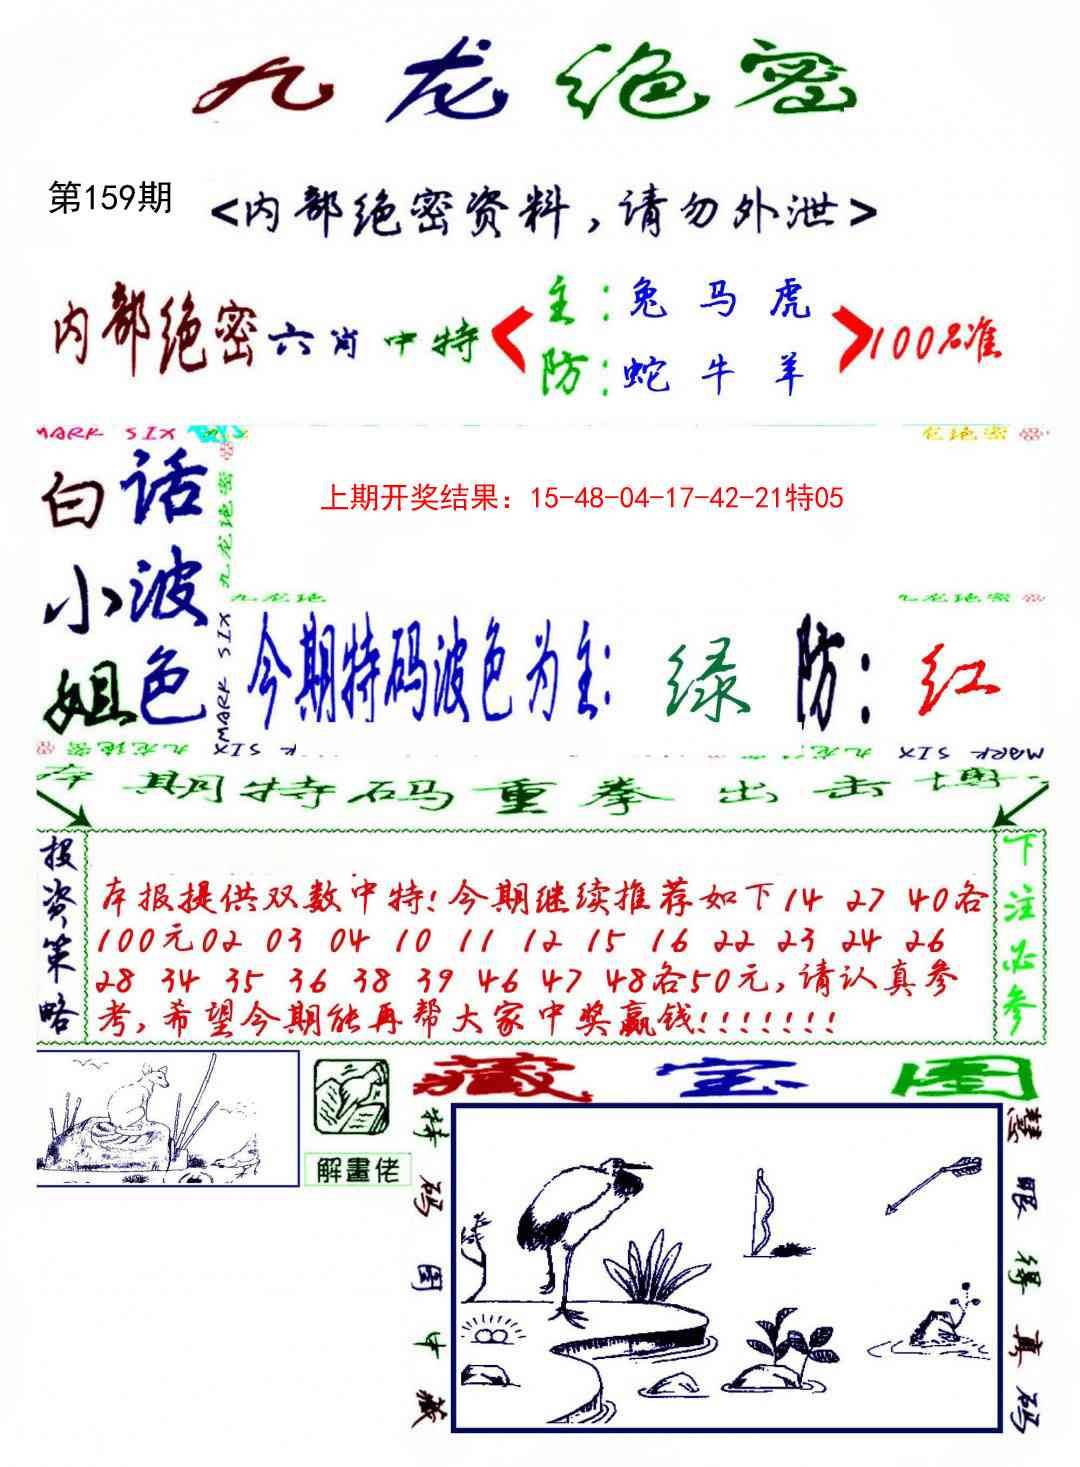 九龙绝密
第159期
<内部绝密资料,请勿外泄>
内部绝密六肖中特
主:兔 马 虎
防:蛇 牛 羊
100%准
MARK SIX
九龙绝密
白话
小波
姐色
九龙绝密
MARK SIX
上期开奖结果：15-48-04-17-42-21特05
九龙绝
九龙绝密
今期特码波色为主: 绿 防: 红
九龙绝密 MARK SIX
九龙绝密 MARK SIX
本期特码重拳出击博
投资策略
本报提供双数中特!今期继续推荐如下14 27 40各
100元02 03 04 10 11 12 15 16 22 23 24 26
28 34 35 36 38 39 46 47 48各50元,请认真参
考,希望今期能再帮大家中奖赢钱!!!!!!!
下注必参
藏宝图
解畫佬
特码图中藏
慧眼得真码